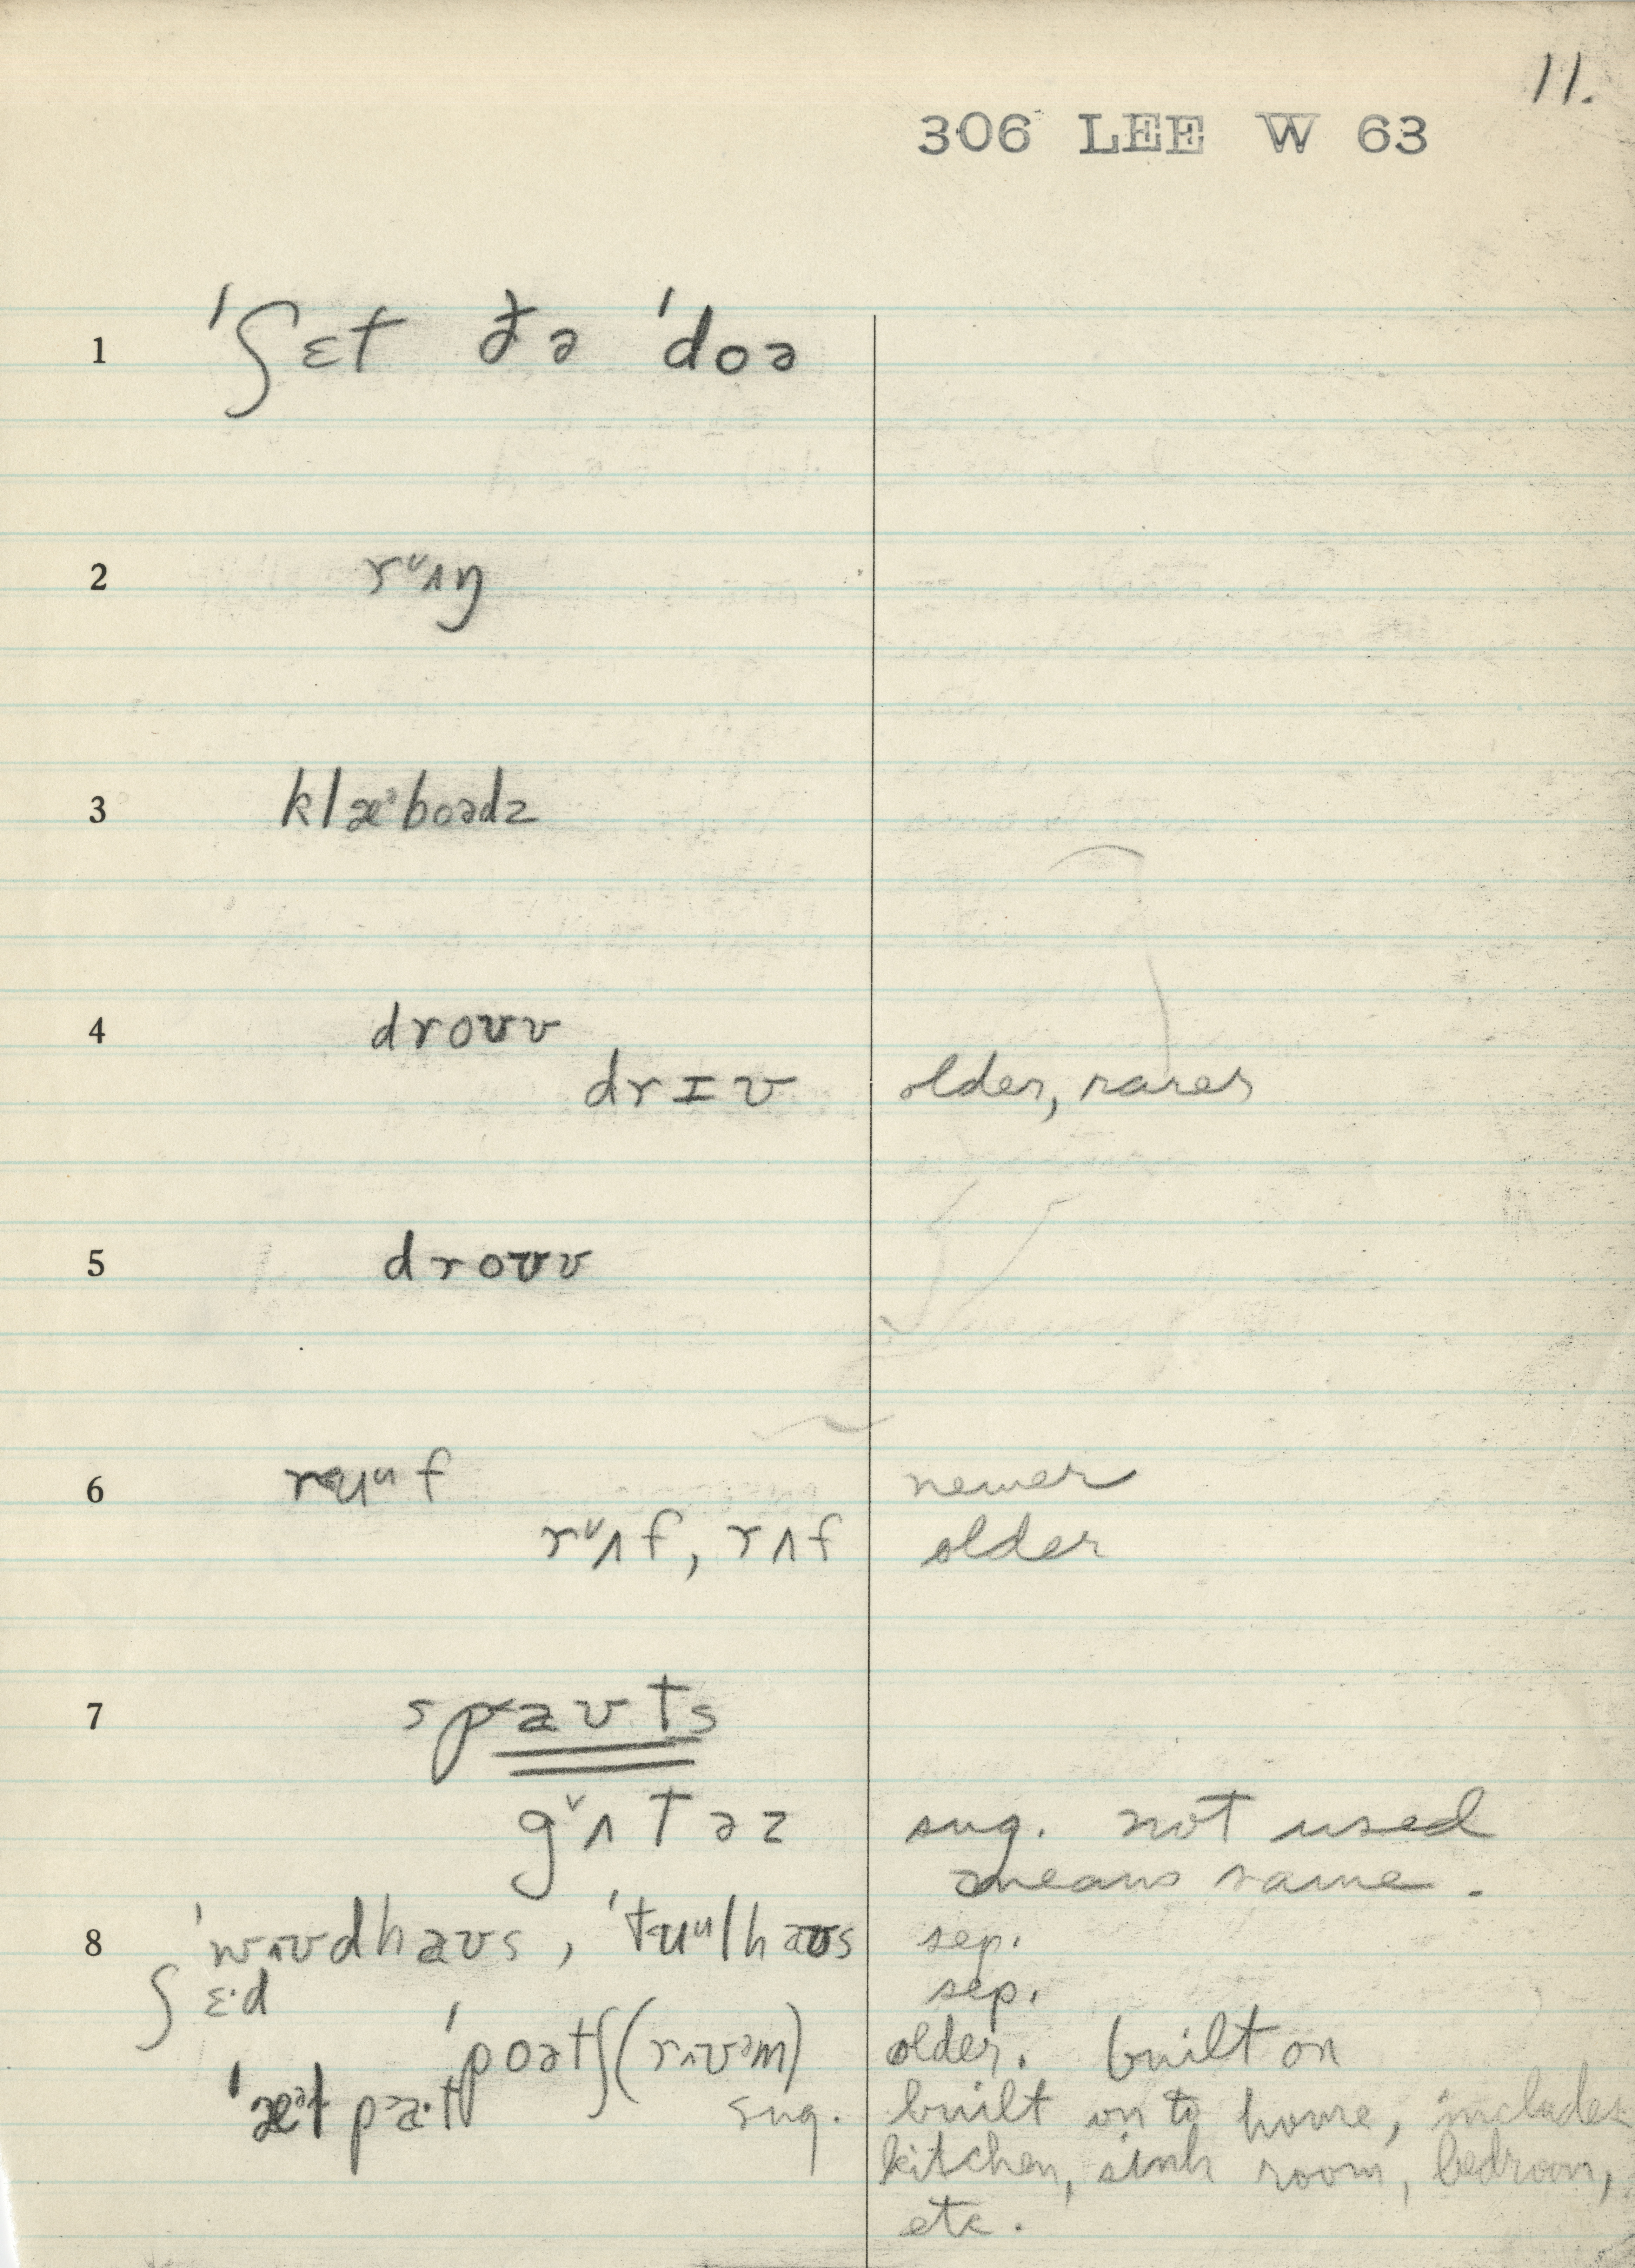 11.
306 LEE W 63
1 ˈʃɛt ðə ˈdoə
2 rᶹʌŋ
3 klæˀboədz
4 droʊv
drɪv older, rarer
5 droʊv
6 ruᵘf newer
rᶹʌf, rʌf older
7 spaʊts
gˇʌtəz sug. not used
means same.
8 ˈwʌʊdhaʊs, ˈtuᵘlhaʊs sep.
ʃɛ·d sep.
ˈpoətʃ (rʌʊᵊm) older. built on
sug. built on to home, includes
kitchen, sink room, bedroom,
etc.